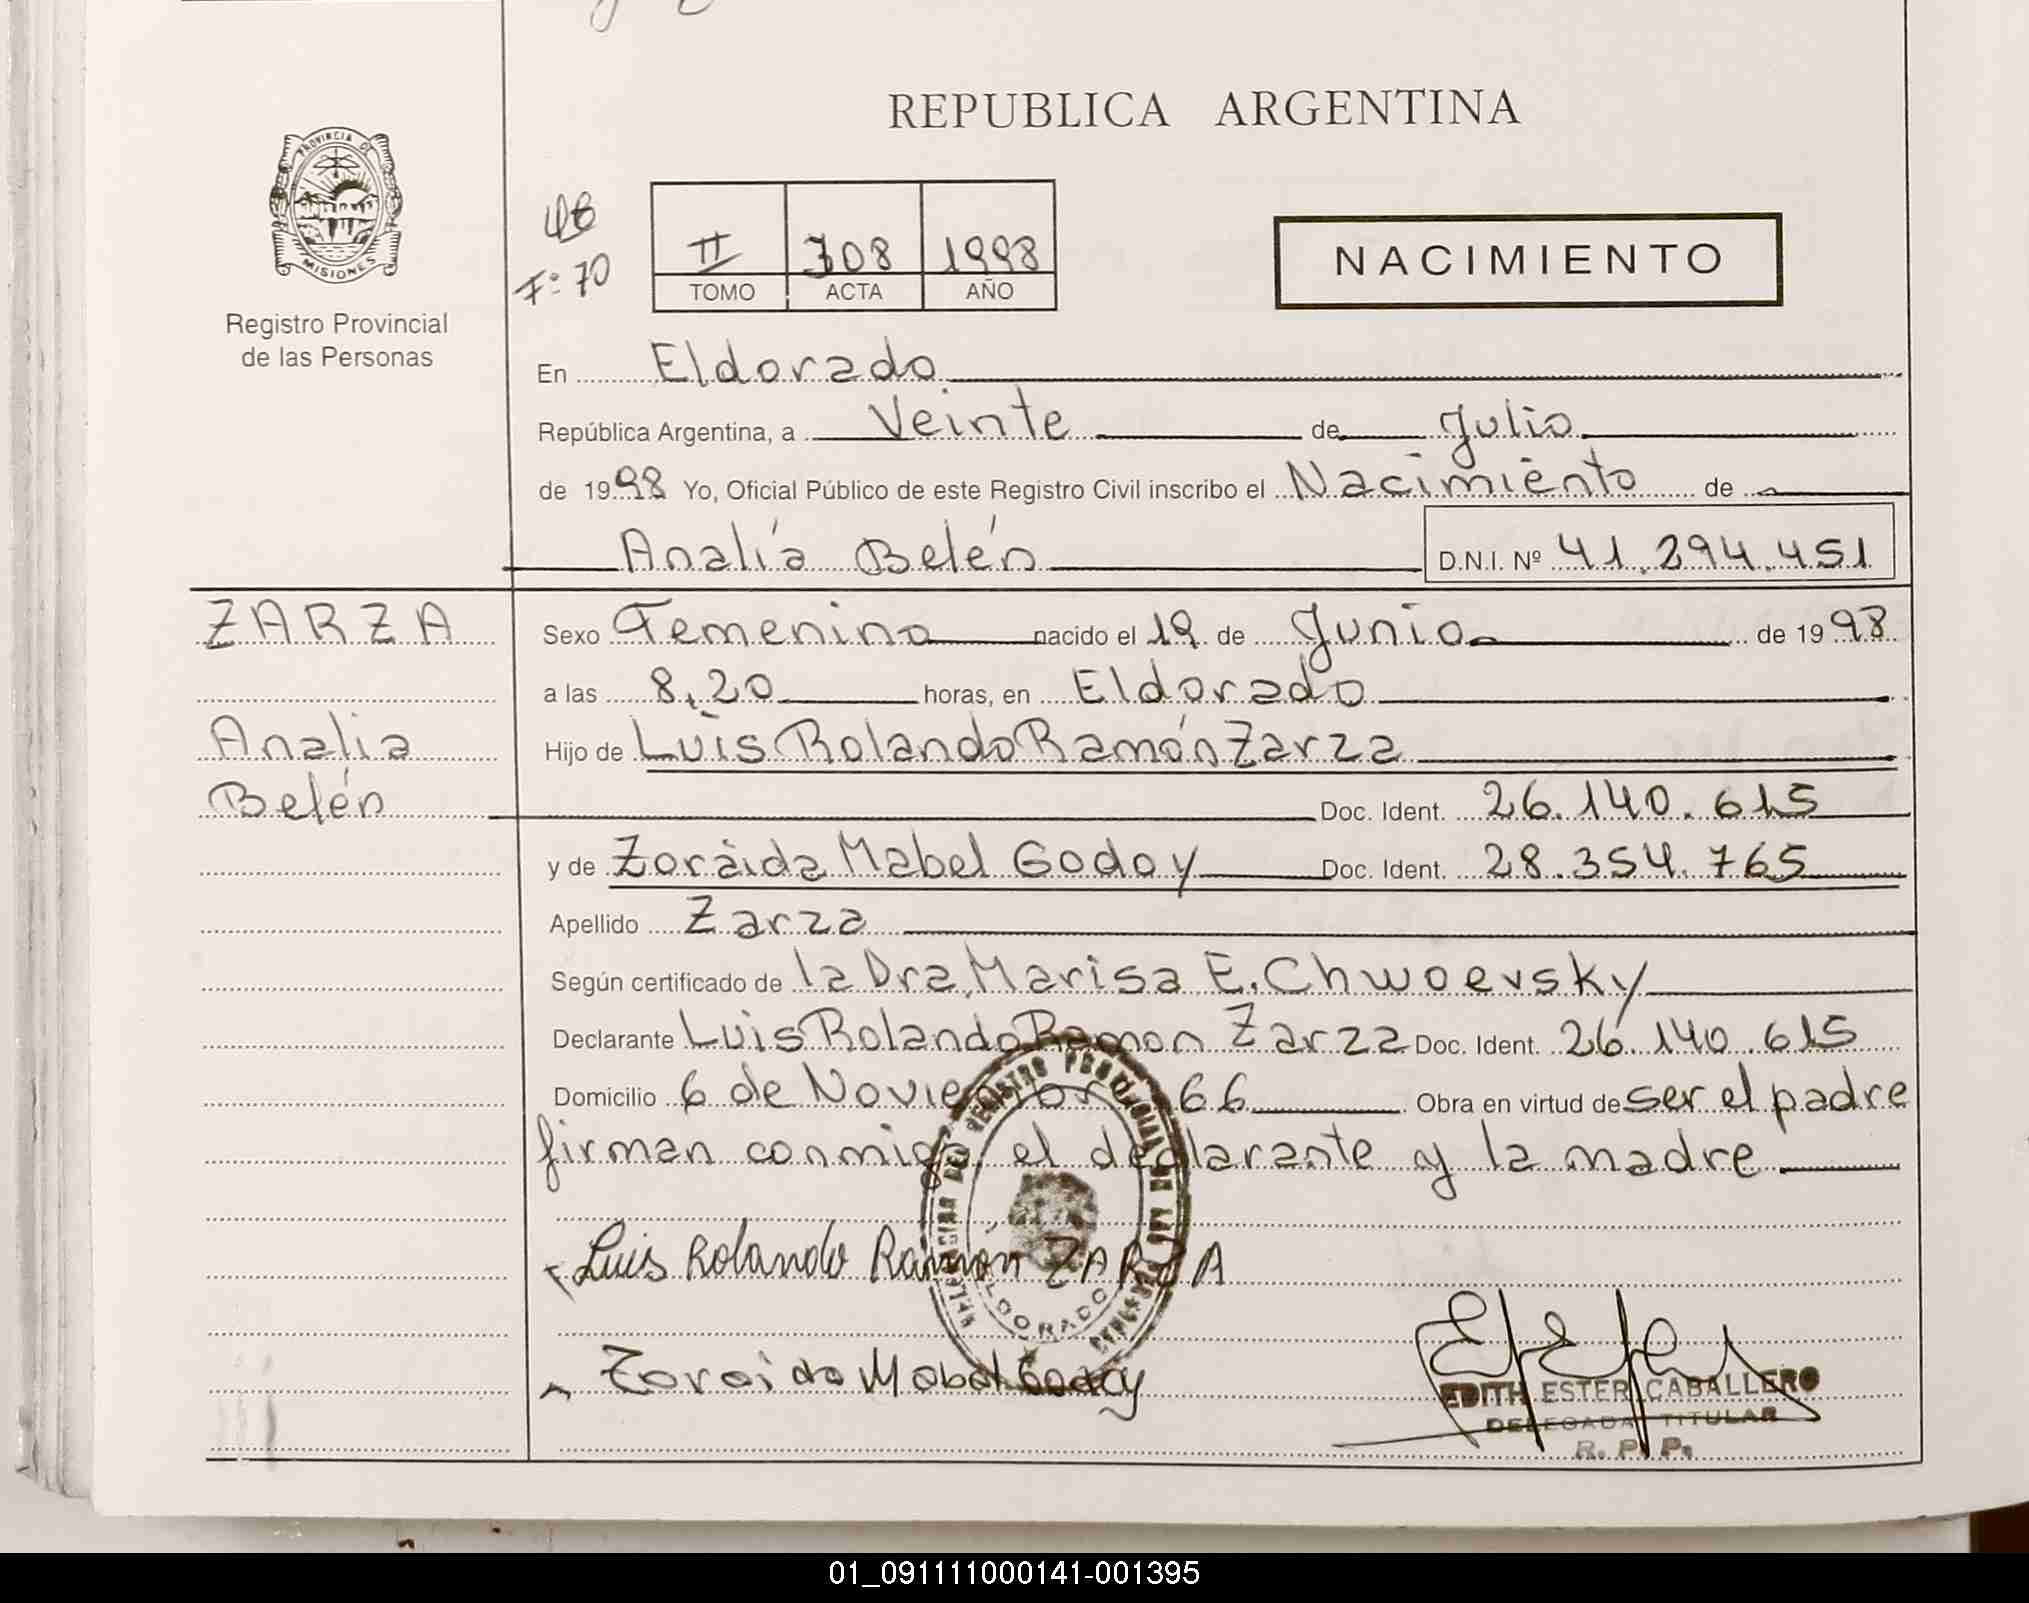 REPUBLICA ARGENTINA
PROVINCIA DE
MISIONES
Registro Provincial
de las Personas
Fº 70
II 708 1998
TOMO ACTA AÑO
NACIMIENTO
En Eldorado
República Argentina, a Veinte de Julio
de 1998 Yo, Oficial Público de este Registro Civil inscribo el Nacimiento de
Analía Belén D.N.I. Nº 41.294.451
ZARZA
Analia
Belén
Sexo Femenino nacido el 19 de Junio de 1998
a las 8,20 horas, en Eldorado
Hijo de Luis Rolando Ramón Zarza
Doc. Ident. 26.140.615
y de Zoraida Mabel Godoy Doc. Ident. 28.354.765
Apellido Zarza
Según certificado de la Dra. Marisa E. Chwoevsky
Declarante Luis Rolando Ramon Zarza Doc. Ident. 26.140.615
Domicilio 6 de Noviembre 66 Obra en virtud de ser el padre
firman conmigo el declarante y la madre
Luis Rolando Ramón ZARZA
ELDORADO
Zoraida Mabel Godoy
EDITH ESTER CABALLERO
DELEGADA TITULAR
R. P. P.
01_091111000141-001395